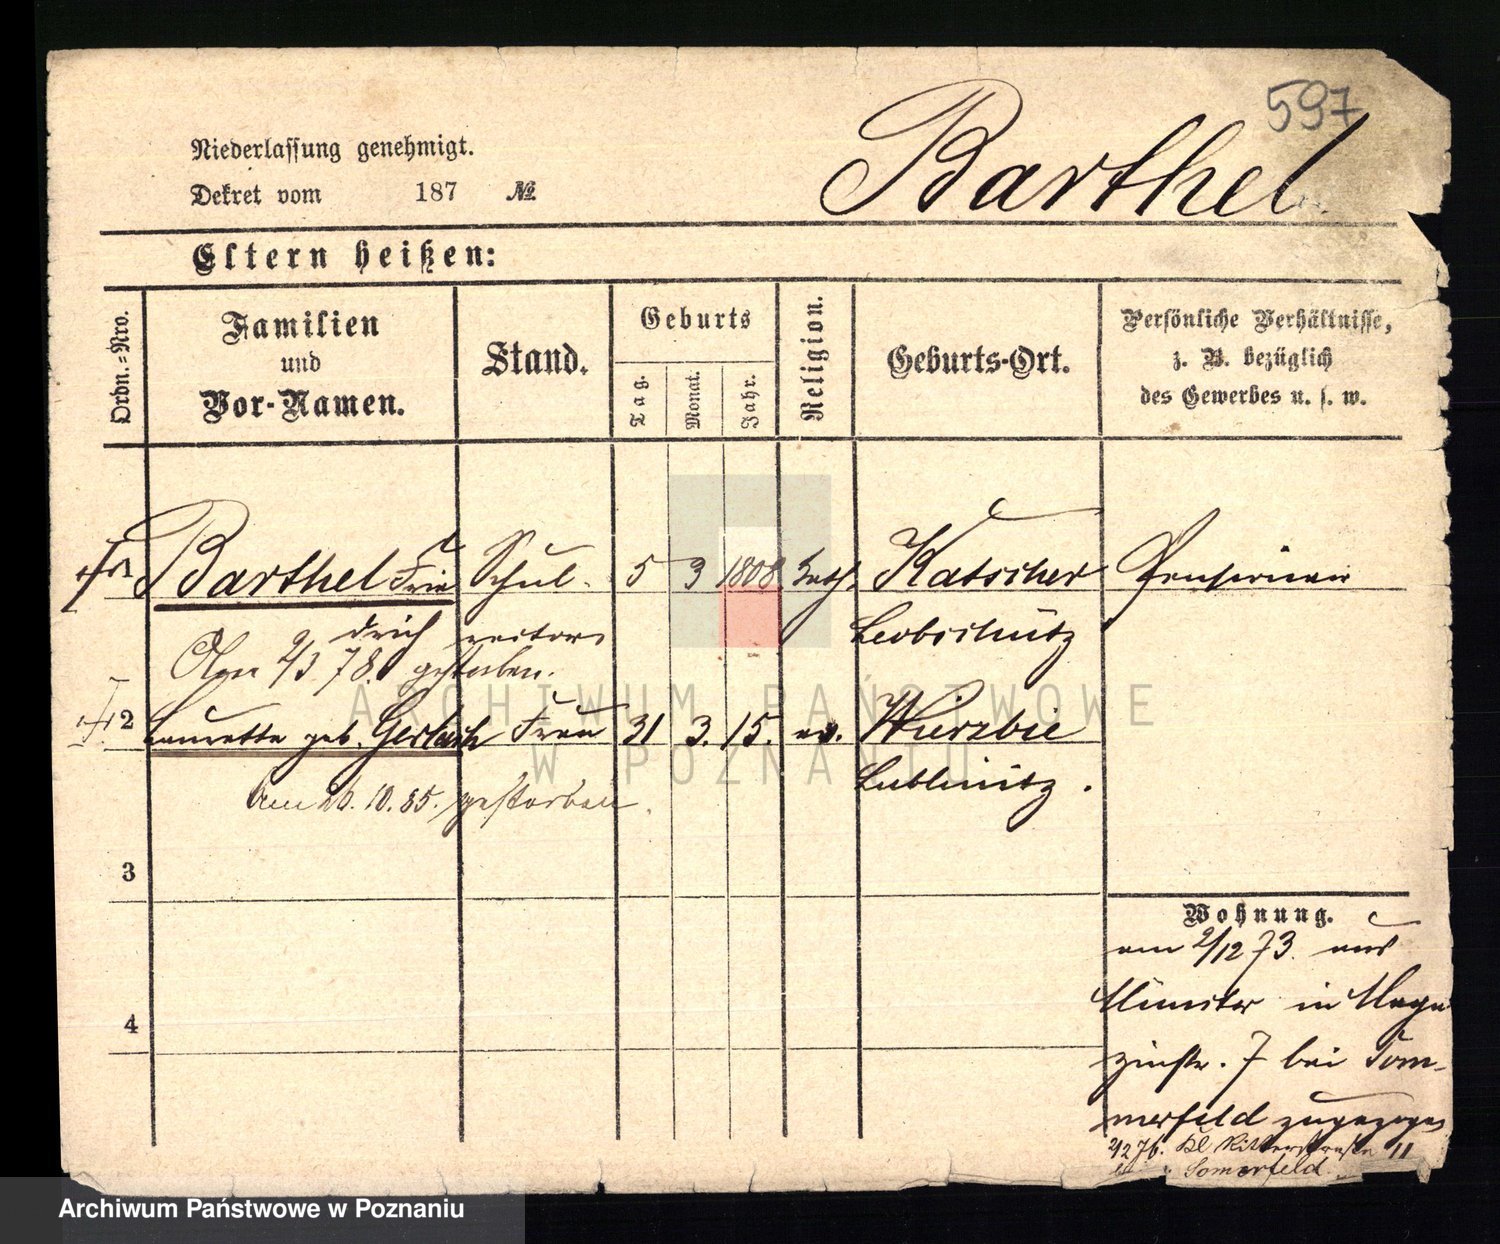 597
Barthel
Niederlassung genehmigt.
Dekret vom 187 №
Eltern heißen:
Ordn.=Nro.
Familien
und
Vor-Namen.
Stand.
Geburts
Tag.
Monat.
Jahr.
Religion.
Geburts-Ort.
Persönliche Verhältnisse,
z. B. bezüglich
des Gewerbes u. s. w.
1 Barthel Frie Schul- 5 3 1808 kath. Katscher Pensionair
drich rector Leobschütz
Am 2/3 78. gestorben.
2 Laurette geb. Gerlach Frau 31 3. 15. ev. Wierzbie
Lublinitz.
Am 20. 10. 85. gestorben.
3
4
Wohnung.
am 2/12 73. aus
Münster in Maga
zinstr. 7 bei Som-
merfeld zugezogen
2/2 76. Kl Ritterstraße 11
Somerfeld
ARCHIWUM PAŃSTWOWE
W POZNANIU
Archiwum Państwowe w Poznaniu